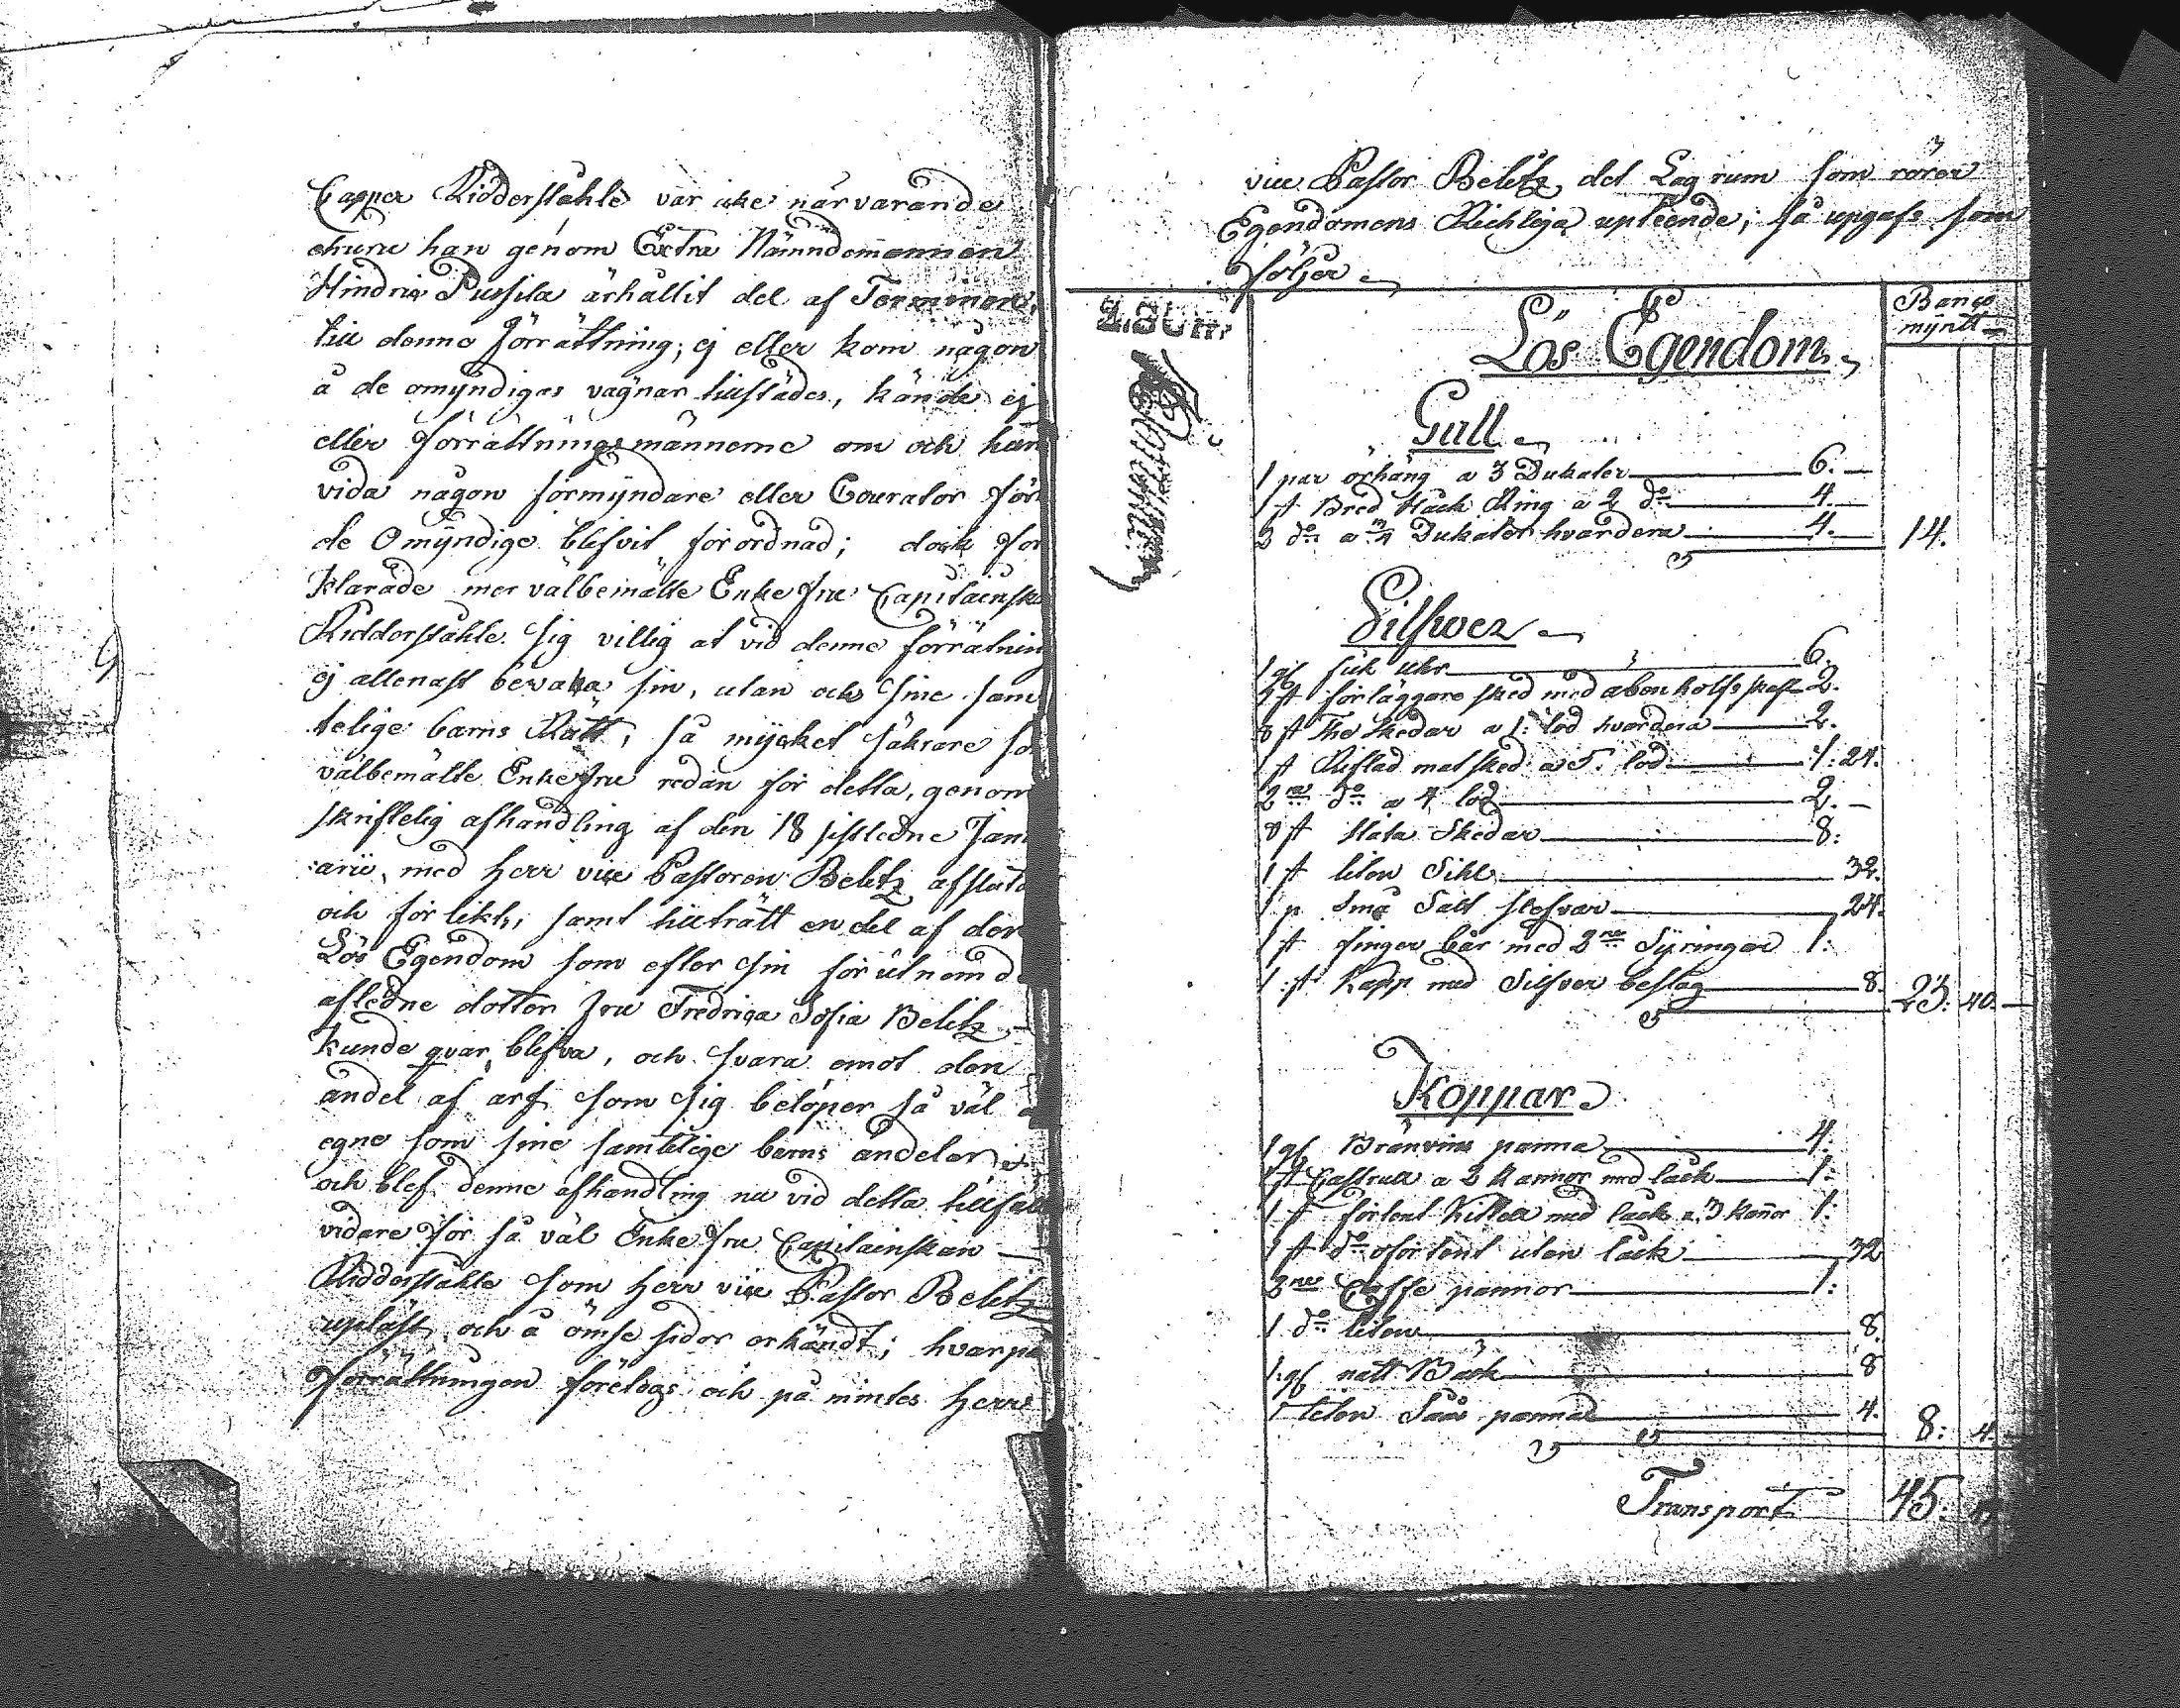 Casper Ridderståhle var icke närvarande
ehuru han genom Extra Nämndemannen
Hindric Pussila ärhållit del af Terminen
till denna förrättning; ej eller kom någon
å de omyndigas vägnar tillstädes, kände ej
eller förrättningsmännerne om och hur
vida någon förmyndare eller Courator för
de Omyndige blefvit förordnad; dock för
klarade mer välbemälte Enke Fru Capitainska
Ridderståhle sig villig at vid denne förrätning
ej allenast bevaka sin, utan och sine sam
telige barns Rätt, så mycket säkrare som
välbemälte Enkefru redan för detta, genom
skriftelig afhandling af den 18 sistledne Janu
arii, med herr vice Pastoren Belitz afslutat
och förlikts, samt tillträtt en del af den
Lös Egendom som efter sin förutnämnd
afledne dotter Fru Fredrica Sofia Belitz
kunde qvar blefva, och svara emot den
andel af arf som sig belöper så väl
egne som sine samtelige barns andelar
och blef denne afhandling nu vid detta tillfälle
vidare för så väl Enke Fru Capitainskan
Ridderståhle som herr vice Pastor Belitz
upläst, och å ömse sidor erkändt; hvarpå
Förrättningen företogs och på mintes herr
vice Pastor Belitz det Lag rum som rörer
Egendomens Richtiga upteende; så upgafs som
följer
Banco
mynt
Lös Egendom
Gull
1 par örhäng a 3 Dukater 6.
1 st Bred släck Ring a 2 do 4.
2 do a Dukater hvardera 4. 14.
Silfwer
1 gl fick uhr 6.
1 st förläggare sked med abenholts skaft 2.
8 st The Skedar a 1 lod hvardera 2.
1 st Riflad matsked a 5 lod 1:24.
2ne do a 4 lod 2.
8 st släta Skedar 8:
1 st liten Sihl 32.
1 p små Salt slefvar 24.
1 st finger bår med 2ne Syringar 1:
1 st Käpp med Silfver beslag 8. 23: 40.
Koppar
1 gl Bränvins panna 4.
1 st Castrull a 2 kannor med lock 1:
1 st förtent Kittell med lock a 3 kanor 1:
1 st do oförtent utan lock 32
2ne Caffe pannor 1:
1 do liten 8.
1 gl natt Bäck 8
1 liten Sås panna 4. 8: 4.
Transport 45: